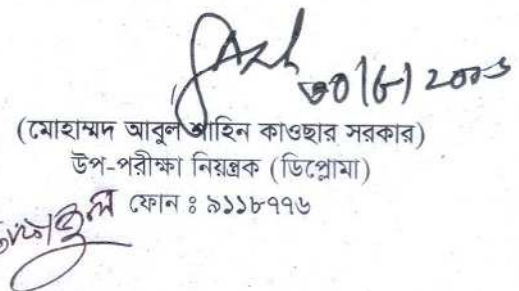 ৩০/৬/২০০১
(মোহাম্মদ আবুল শাহিন কাওছার সরকার)
উপ-পরীক্ষা নিয়ন্ত্রক (ডিপ্লোমা)
ফোন ঃ ৯১১৮৭৭৬